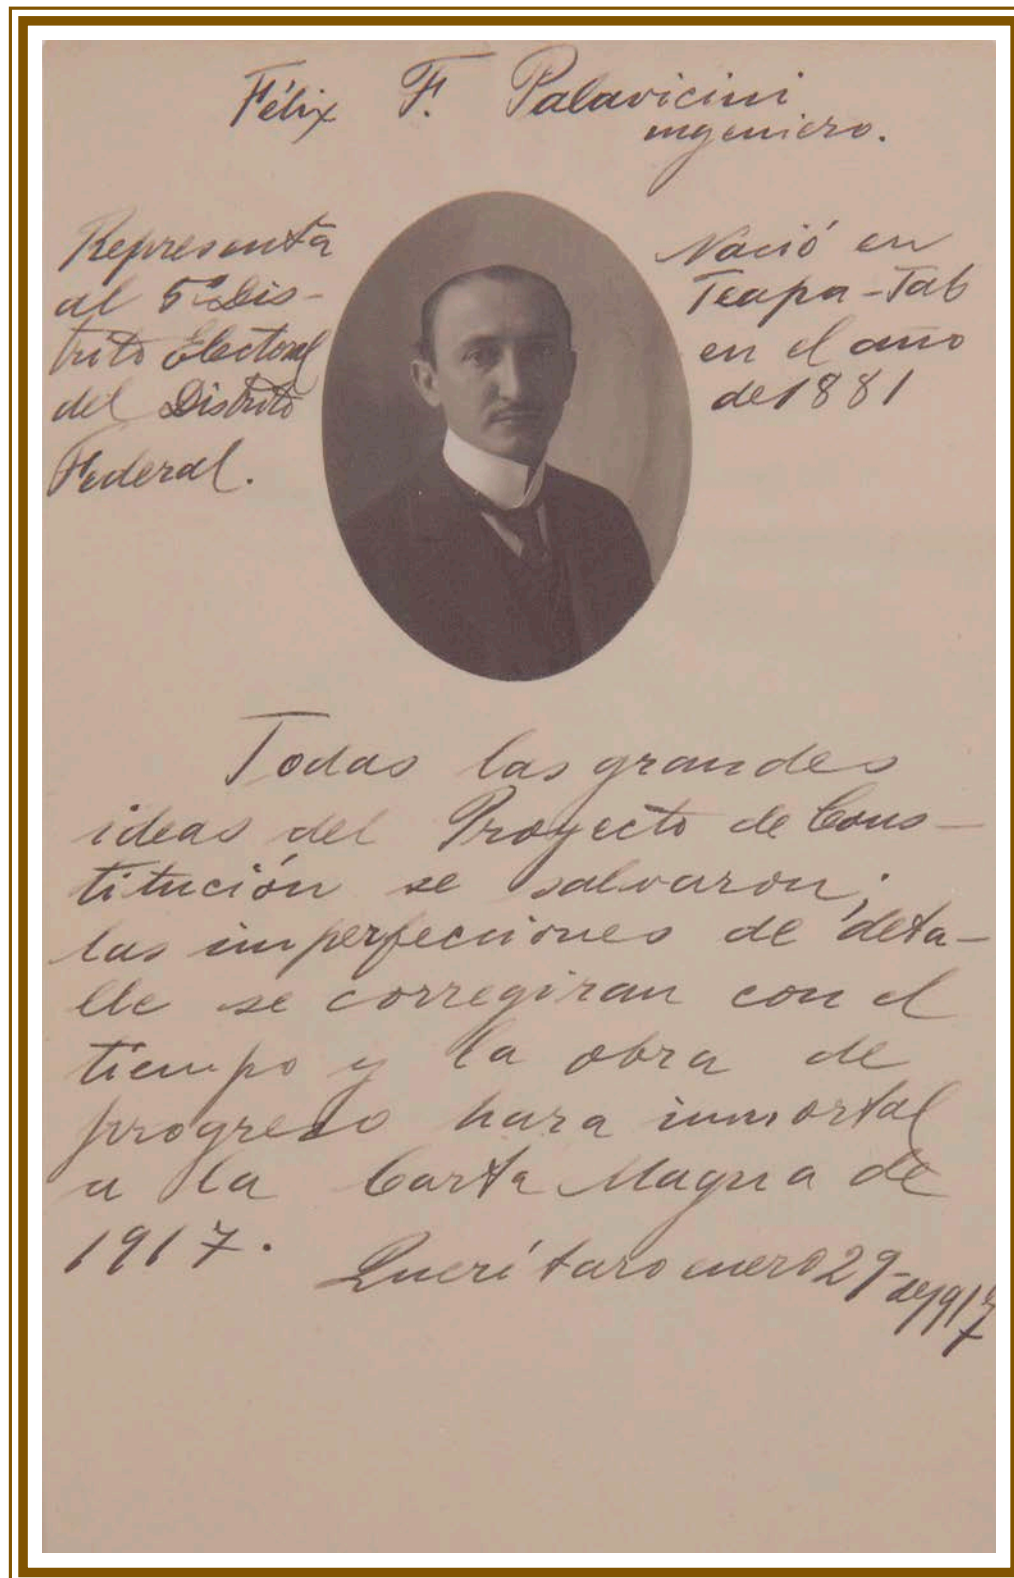 Félix F. Palavicini
ingeniero.
Representa
al 5º Dis-
trito Electoral
del Distrito
Federal.
Nació en
Teapa-Tab
en el año
de 1881
Todas las grandes
ideas del Proyecto de Cons-
titución se salvaron;
las imperfecciones de deta-
lle se corregiran con el
tiempo y la obra de
progreso hara inmortal
a la Carta Magna de
1917.
Querétaro enero 29-de 1917